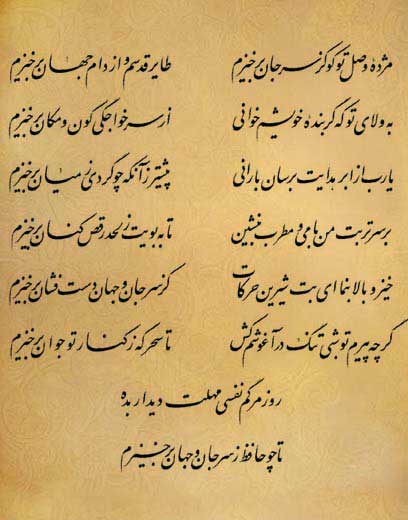 مژدهٔ وصل تو کو کز سر جان برخیزم طایر قدسم و از دام جهان برخیزم
به ولای تو که گر بندهٔ خویشم خوانی از سر خواجگی کون و مکان برخیزم
یارب از ابر هدایت برسان بارانی پیشتر زآنکه چو گردی ز میان برخیزم
بر سر تربت من با می و مطرب بنشین تا به بویت ز لحد رقص کنان برخیزم
خیز و بالا بنما ای بت شیرین حرکات کز سر جان و جهان دست فشان برخیزم
گرچه پیرم تو شبی تنگ در آغوشم کش تا سحرگه ز کنار تو جوان برخیزم
روز مرگم نفسی مهلت دیدار بده
تا چو حافظ ز سر جان و جهان برخیزم